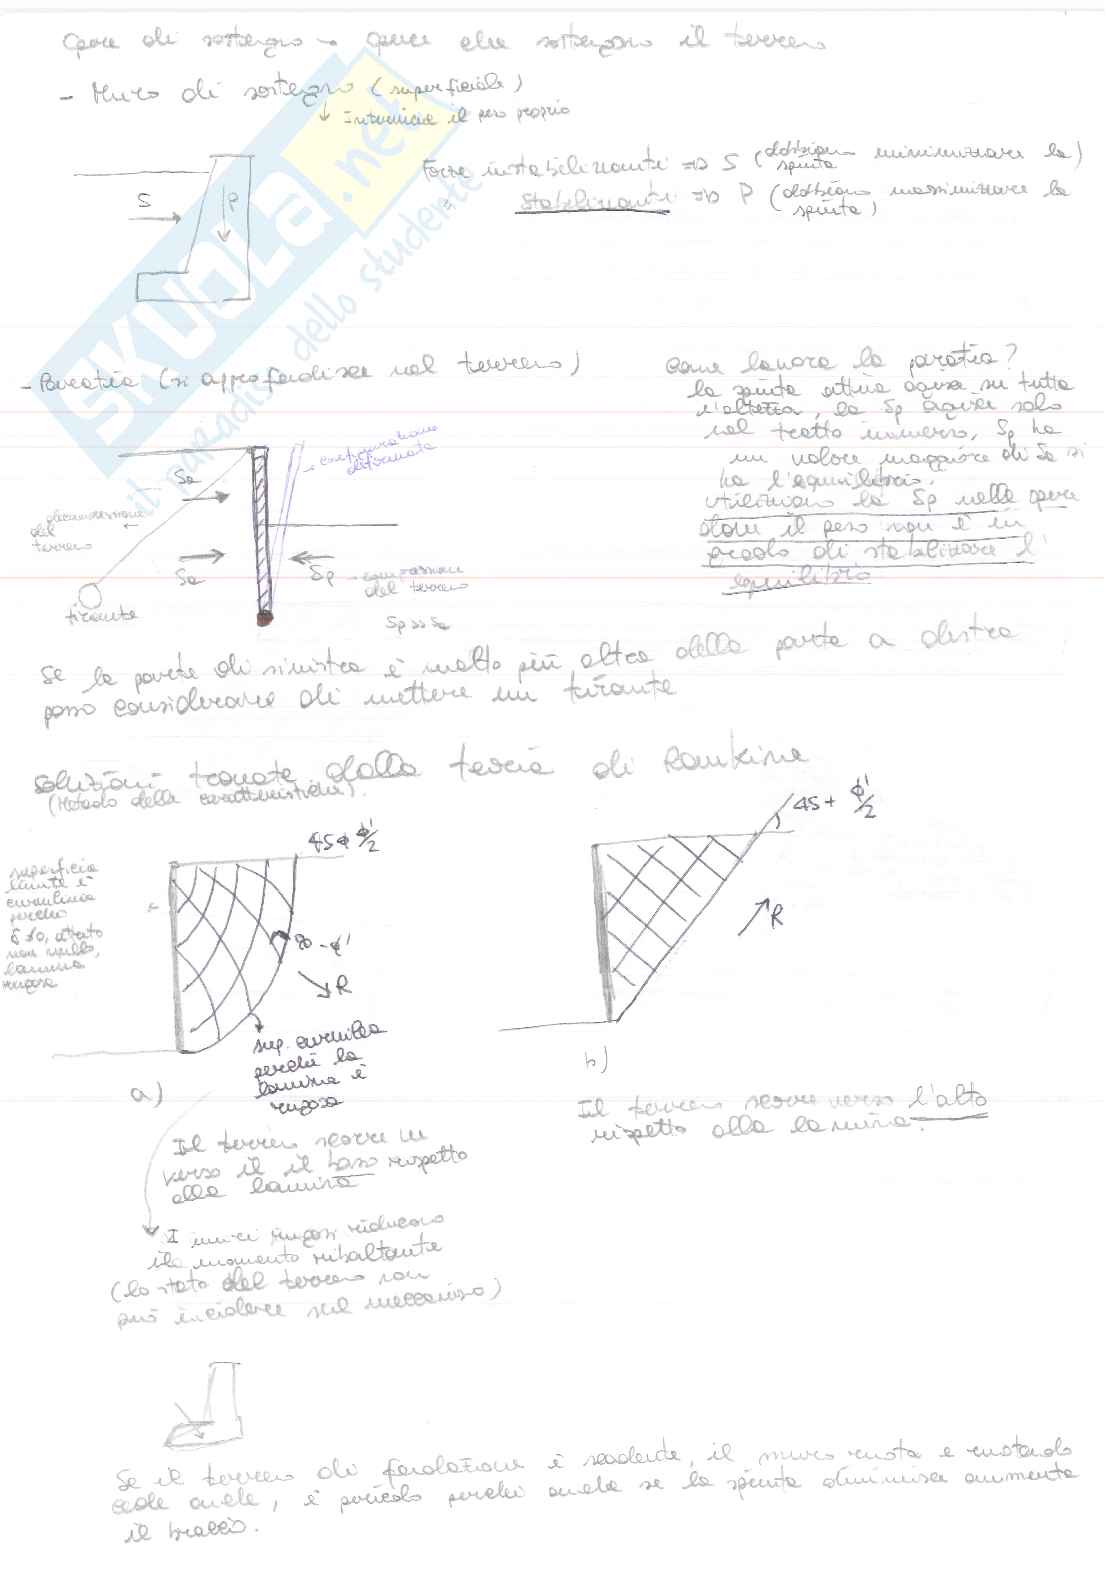 Opere di sostegno → opere che sostengono il terreno
- Muro di sostegno (superficiale)
↓ Interviene il peso proprio
Forze instabilizzanti => S (dobbiamo minimizzare la spinta)
" stabilizzanti => P (dobbiamo massimizzare la spinta)
S
P
SKUOLA.net
il paradiso dello studente
- Paratia (si approfondisce nel terreno)
Come lavora la paratia?
la spinta attiva agisce su tutta
l'altezza, la Sp agisce solo
nel tratto immerso, Sp ha
un valore maggiore di Sa si
ha l'equilibrio.
Utilizziamo la Sp nelle opere
dove il peso non è in
grado di stabilizzare l'
equilibrio
configurazione
deformata
Sa
decompressione
del
terreno
Sa
Sp
compressione
del terreno
tirante
Sp >> Sa
Se la parete di sinistra è molto più alta della parte a destra
posso considerare di mettere un tirante
Soluzioni trovate dalla teoria di Rankine
(Metodo delle caratteristiche).
45 + φ'/2
45 + φ'/2
superficie
limite è
curvilinea
perché
δ≠0, attrito
non nullo,
lamina
rugosa
90 - φ'
R
R
sup. curvilinea
perché la
lamina è
rugosa
a)
b)
Il terreno scorre in
verso il il basso rispetto
alla lamina
Il terreno scorre verso l'alto
rispetto alla lamina.
I muri rugosi riducono
il momento ribaltante
(lo stato del terreno non
può incidere sul meccanismo)
Se il terreno di fondazione è scadente, il muro ruota e ruotando
cede anche, è pericolo perché anche se la spinta diminuisce aumenta
il braccio.